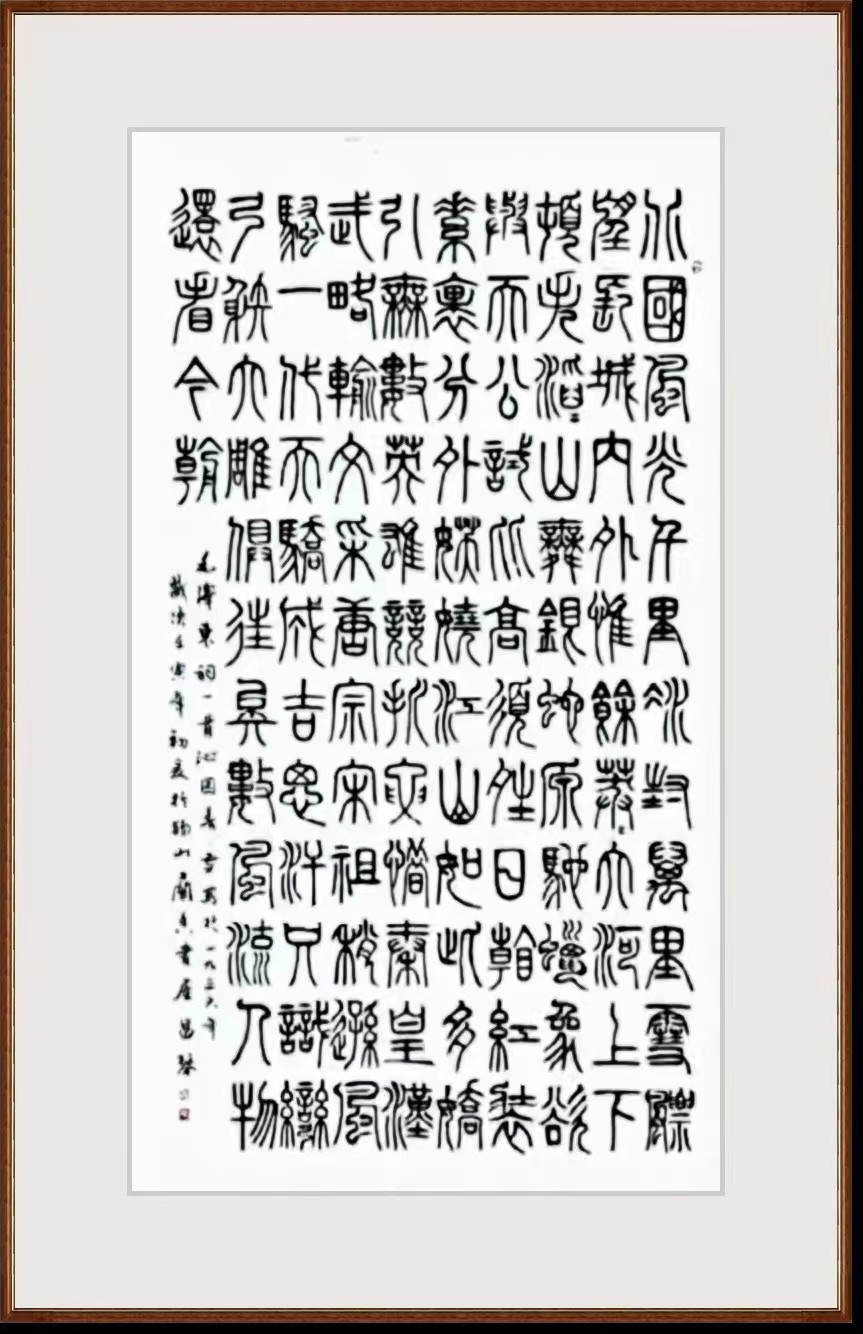 北國風光千里冰封萬里雪飄
望長城內外惟餘莽〻大河上下
頓失滔〻山舞銀蛇原馳蠟象欲
與天公試比高須晴日看紅裝
素裹分外妖嬈江山如此多嬌
引無數英雄競折腰惜秦皇漢
武略輸文采唐宗宋祖稍遜風
騷一代天驕成吉思汗只識彎
弓射大雕俱往矣數風流人物
還看今朝
毛澤東詞一首沁園春雪寫於一九三六年
歲次壬寅年初夏於山蘭香書屋